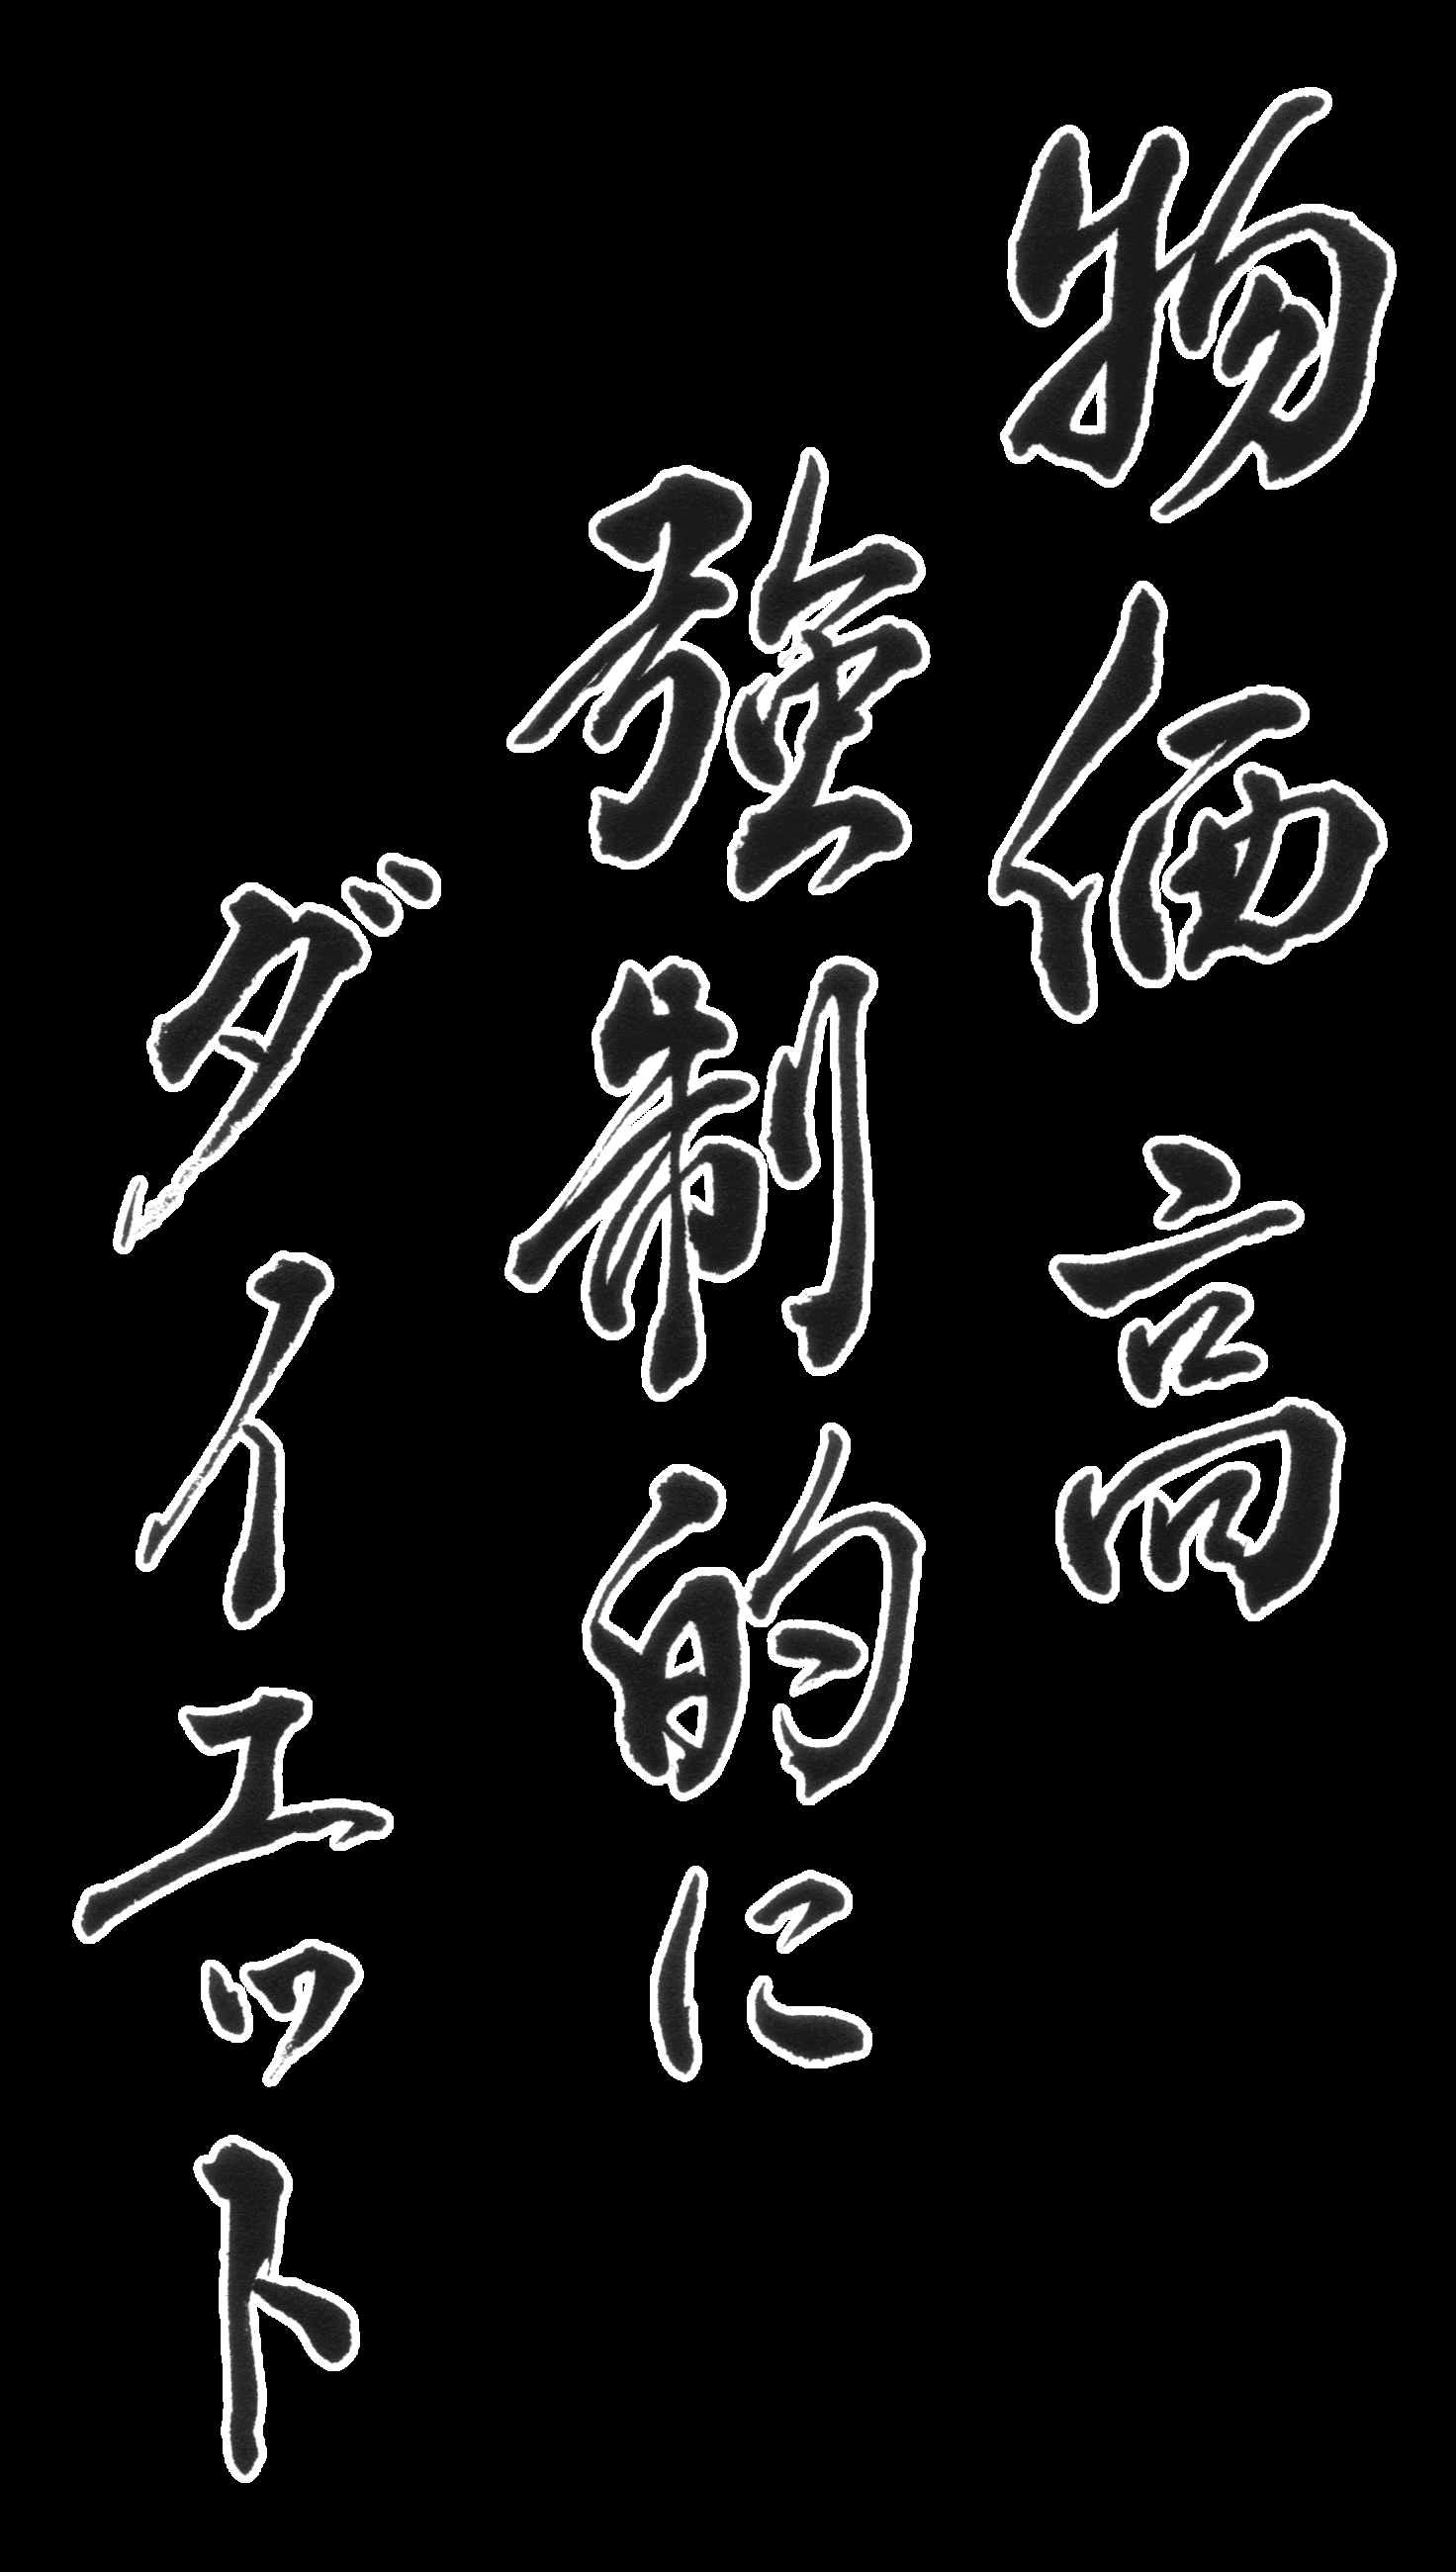 物価高
強制的に
ダイエット